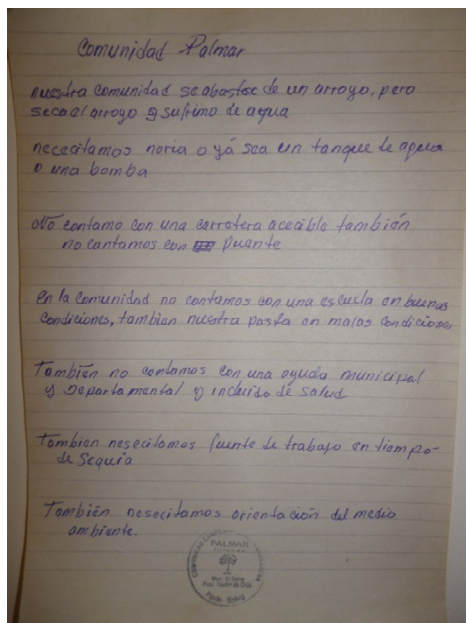 Comunidad Palmar
nuestra comunidad se abastec de un arroyo, pero
seca el arroyo y sufrimo de agua
nececitamos noria o yá sea un tanque de agua
o una bomba
No contamo con una carretera acecible también
no contamos con puente
en la comunidad no contamos con una escuela en buenas
condiciones, tambien nuestra posta en malas condiciones
También no contamos con una ayuda municipal
y Departamental y incluido de salud
Tambien nesecitamos fuente de trabajo en tiempo
de Sequia
También nesecitamos orientación del medio
ambiente.
PALMAR